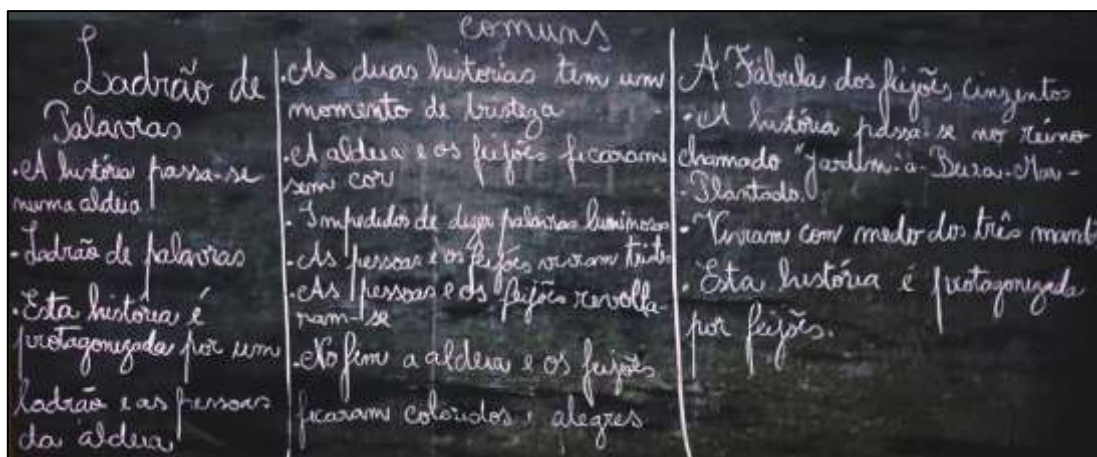 Ladrão de
Palavras
• A história passa-se
numa aldeia
• Ladrão de palavras
• Esta história é
protagonizada por um
ladrão e as pessoas
da aldeia
comuns
• As duas historias tem um
momento de tristeza
• A aldeia e os feijões ficaram
sem cor
• Impedidos de dizer palavras luminosas
• As pessoas e os feijões viviam triste
• As pessoas e os feijões revolta-
ram-se
• No fim a aldeia e os feijões
ficaram coloridos e alegres
A Fábula dos feijões cinzentos
• A história passa-se no reino
chamado "Jardim-à-Beira-Mar-
-Plantado.
• Viviam com medo dos três
• Esta história é protagonizada
por feijões.